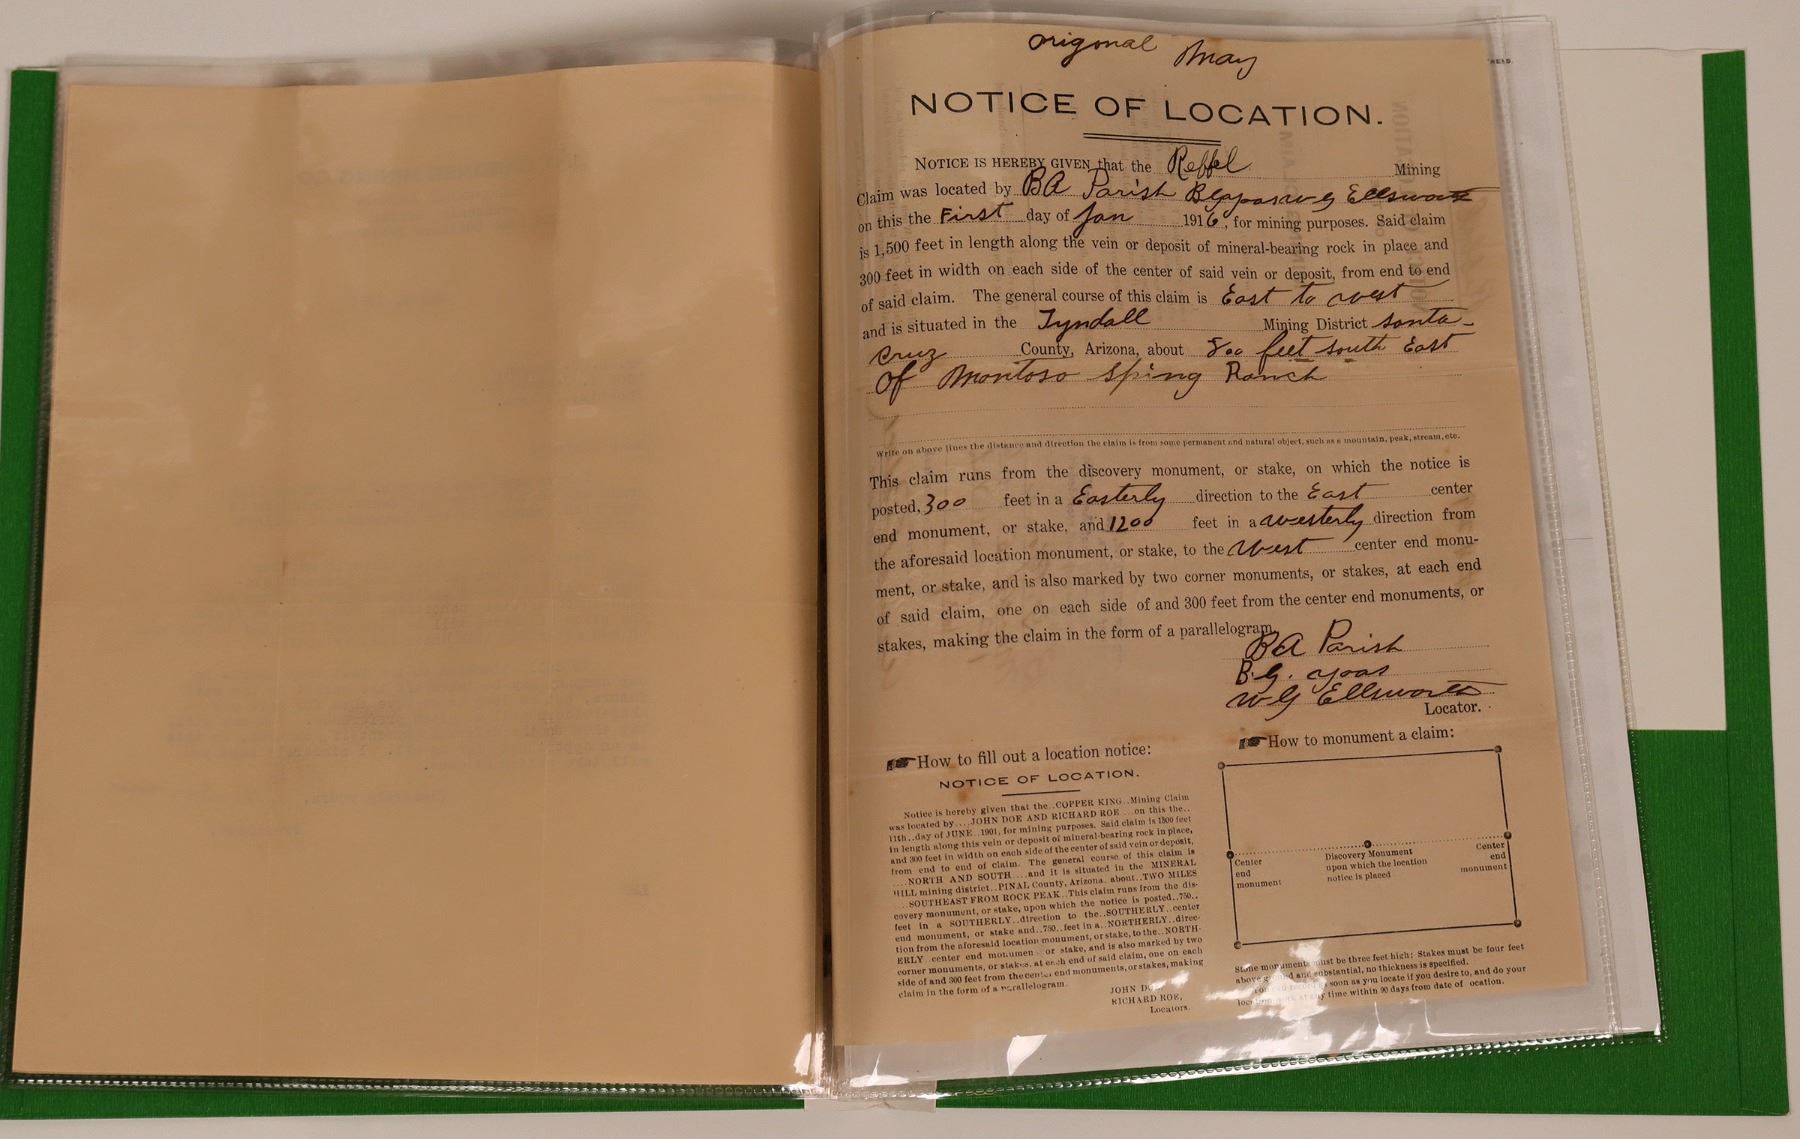 origonal May
NOTICE OF LOCATION.
NOTICE IS HEREBY GIVEN that the Reffel Mining
Claim was located by BA Parish BGyoas W G Ellsworth
on this the First day of Jan 1916, for mining purposes. Said claim
is 1,500 feet in length along the vein or deposit of mineral-bearing rock in place and
300 feet in width on each side of the center of said vein or deposit, from end to end
of said claim. The general course of this claim is East to west
and is situated in the Tyndall Mining District Santa-
Cruz County, Arizona, about 800 feet south East
Of Montoso Spring Ranch
Write on above lines the distance and direction the claim is from some permanent and natural object, such as a mountain, peak, stream, etc.
This claim runs from the discovery monument, or stake, on which the notice is
posted, 300 feet in a Easterly direction to the East center
end monument, or stake, and 1200 feet in a westerly direction from
the aforesaid location monument, or stake, to the West center end monu-
ment, or stake, and is also marked by two corner monuments, or stakes, at each end
of said claim, one on each side of and 300 feet from the center end monuments, or
stakes, making the claim in the form of a parallelogram
BA Parish
B.G. yoas
W G Ellsworth
Locator.
How to fill out a location notice:
NOTICE OF LOCATION.
Notice is hereby given that the..COPPER KING..Mining Claim
was located by....JOHN DOE AND RICHARD ROE...on this the..
11th..day of JUNE..1901, for mining purposes. Said claim is 1500 feet
in length along this vein or deposit of mineral-bearing rock in place,
and 300 feet in width on each side of the center of said vein or deposit,
from end to end of claim. The general course of this claim is
....NORTH AND SOUTH....and it is situated in the MINERAL
HILL mining district..PINAL County, Arizona. about..TWO MILES
...SOUTHEAST FROM ROCK PEAK..This claim runs from the dis-
covery monument, or stake, upon which the notice is posted..750..
feet in a SOUTHERLY..direction to the..SOUTHERLY..center
end monument, or stake and..750..feet in a..NORTHERLY..direc-
tion from the aforesaid location monument, or stake, to the..NORTH-
ERLY center end monumen or stake, and is also marked by two
corner monuments, or stakes, at each end of said claim, one on each
side of and 300 feet from the center end monuments, or stakes, making
claim in the form of a parallelogram.
JOHN DOE
RICHARD ROE,
Locators.
How to monument a claim:
Center
end
monument
Discovery Monument
upon which the location
notice is placed
Center
end
monument
Stone monuments must be three feet high: Stakes must be four feet
above ground and substantial, no thickness is specified.
soon as you locate if you desire to, and do your
at any time within 90 days from date of ocation.